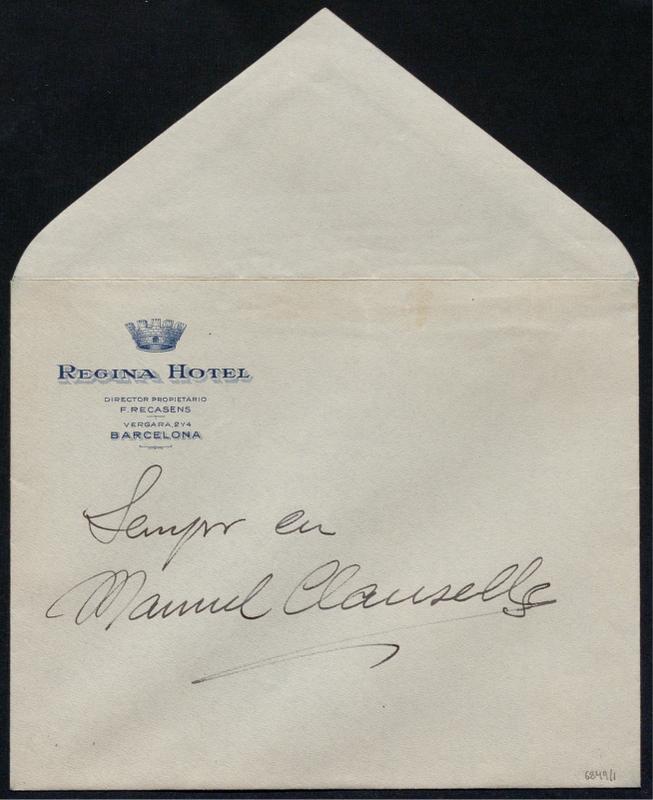 REGINA HOTEL
DIRECTOR PROPIETARIO
F. RECASENS
VERGARA, 2 Y 4
BARCELONA
en
Manuel Clausells
6849/1